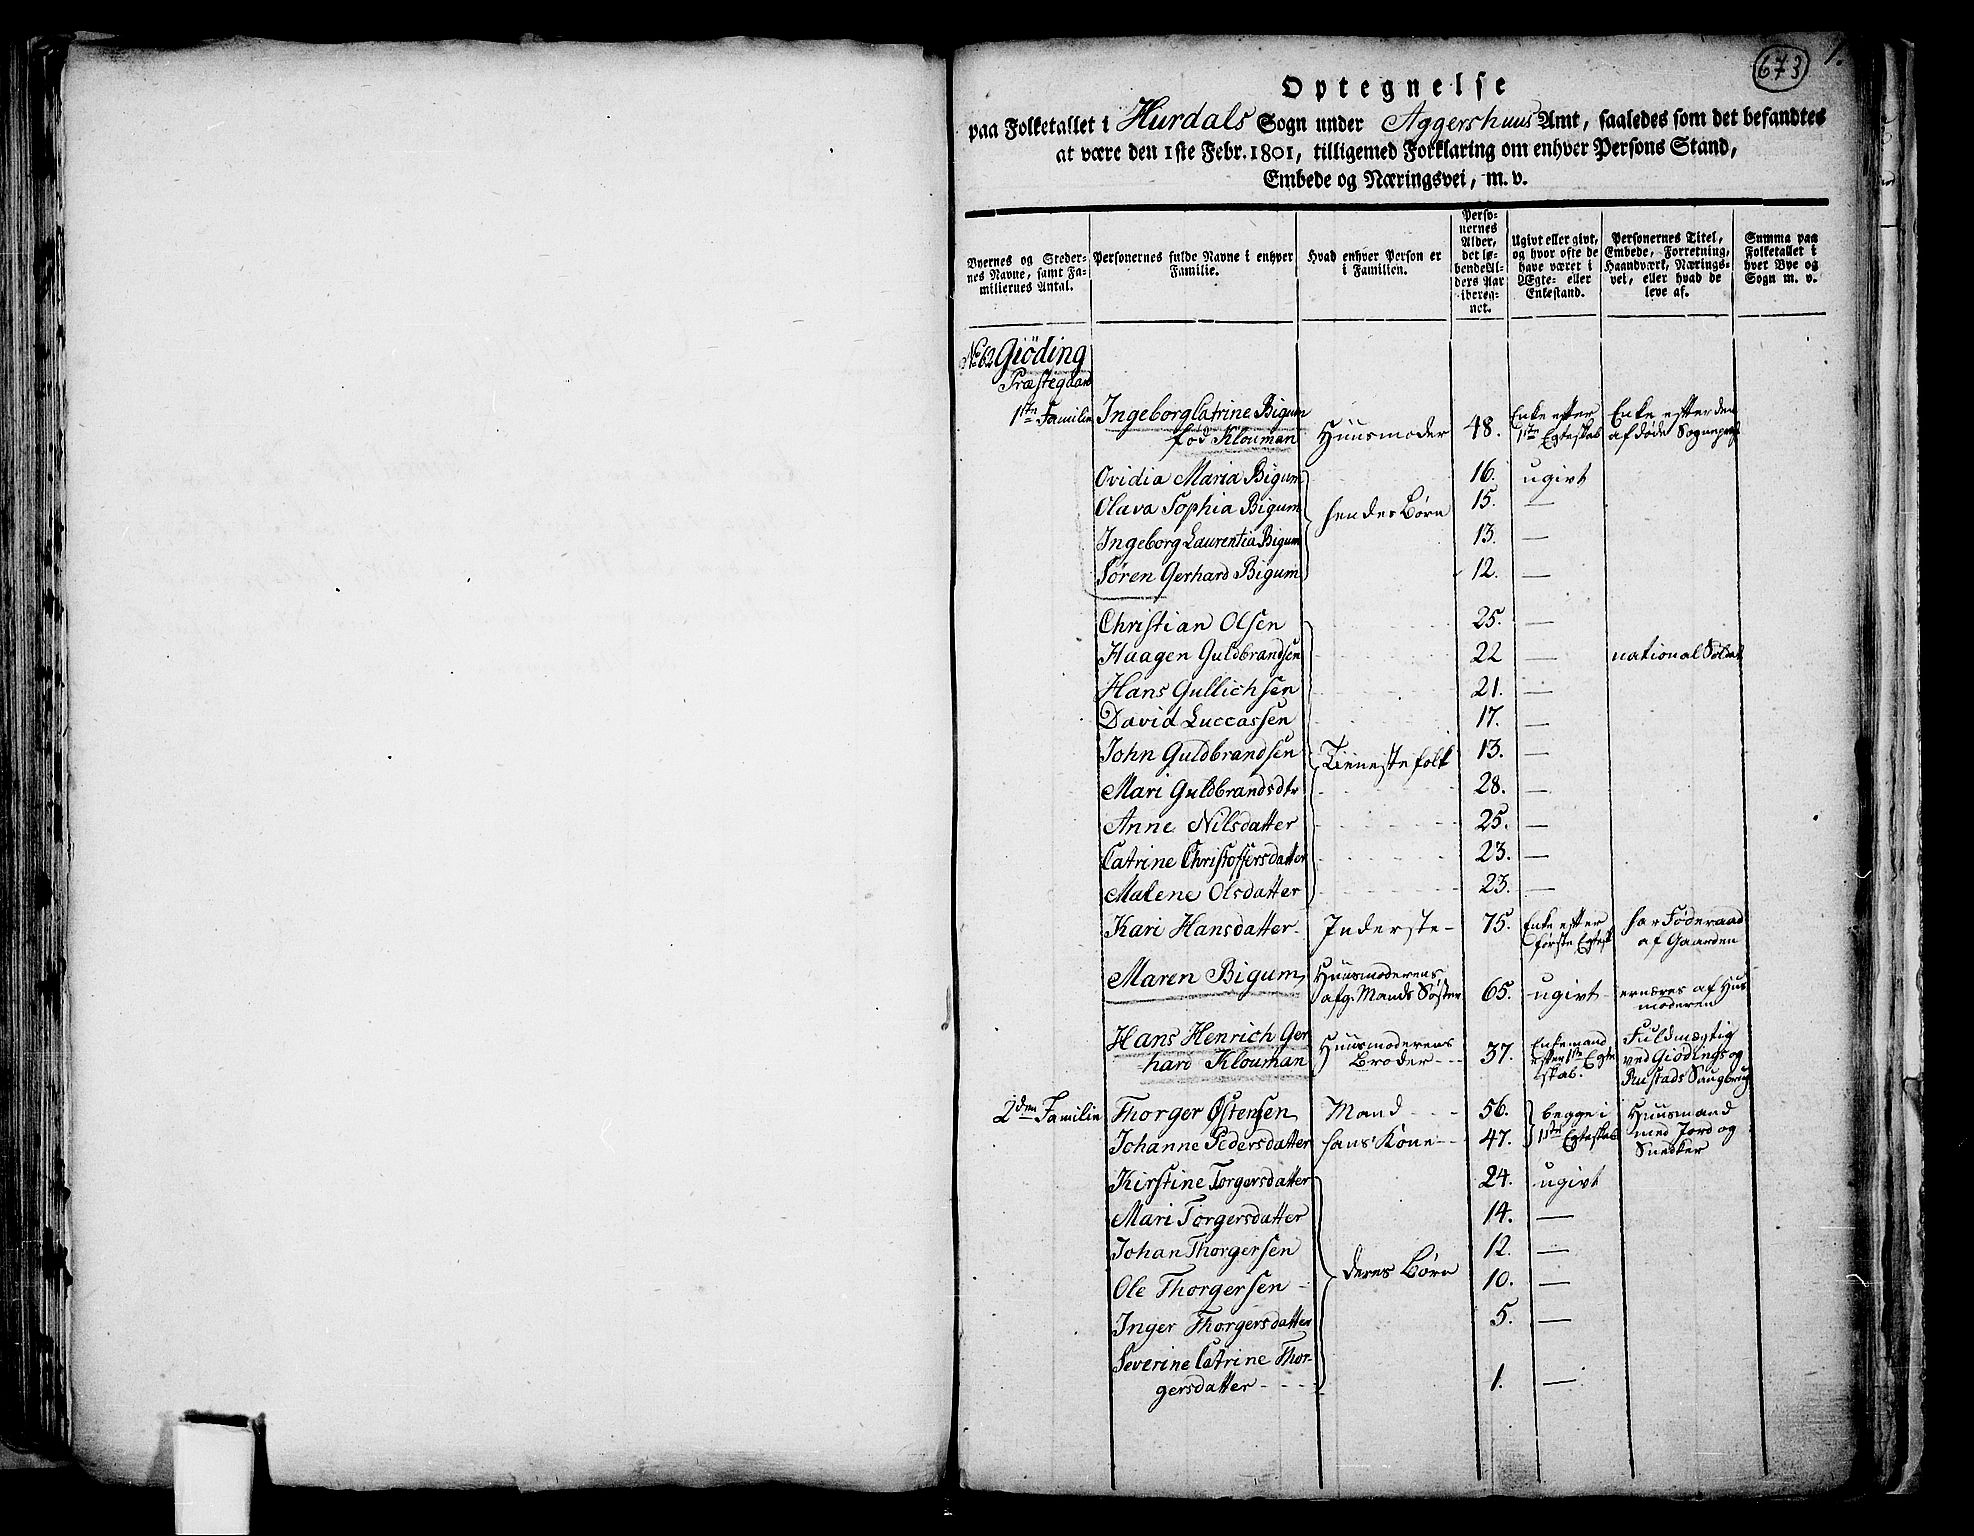 673
1.
Optegnelse
paa Folketallet i Hurdals Sogn under Aggershuus Amt, saaledes som det befandtes
at være den 1ste Febr. 1801, tilligemed Forklaring om enhver Persons Stand,
Embede og Næringsvei, m. v.
Byernes og Steder-
nes Navne, samt Fa-
miliernes Antal.
Personernes fulde Navne i enhver
Familie.
Hvad enhver Person er
i Familien.
Perso-
nernes
Alder,
det lø-
bende Al-
ders Aar
ibereg-
net.
Ugivt eller givt,
og hvor ofte de
have været i
Ægte- eller
Enkestand.
Personernes Titel,
Embede, Forretning,
Haandværk, Nærings-
vei, eller hvad de
leve af.
Summa paa
Folketallet i
hver Bye og
Sogn m. v.
No 62 Giöding
Præstegaard
1ste Familie Ingeborg Catrine Bigum
fød Klouman Huusmoder 48. Enke efter
1ste Egteskab Enke efter den
afdøde Sognepræst
Ovidia Maria Bigum 16. ugivt
Olava Sophia Bigum 15. —
hendes Børn
Ingeborg Laurentia Bigum 13. —
Søren Gerhard Bigum 12. —
Christian Olsen 25. —
Haagen Guldbrandsen 22 — national Soldat
Hans Gullichsen 21. —
David Luccassen 17. —
John Guldbrandsen 13. —
Tieneste folk
Mari Guldbrandsdtr 28. —
Anne Nilsdatter 25. —
Catrine Christoffersdatter 23. —
Malene Olsdatter 23. —
Kari Hansdatter Inderste 75. Enke efter
første Egtesk har Føderaad
af Gaarden
Maren Bigum Huusmoderens
afg. Mands Søster 65. ugivt ernæres af Hus
moderen
Hans Henrich Ger
hard Klouman Huusmoderens
Broder 37. Enkemand
efter 1ste Egte
skab. Fuldmægtig
ved Giödings og
Rustads Saugbrug
2den Familie Thorger Østensen Mand 56. begge i
1ste Egteskab Huusmand
med Jord og
Snedker
Johanne Pedersdatter hans Kone 47.
Kirstine Torgersdatter 24. ugivt
Mari Torgersdatter 14. —
Johan Thorgersen 12. —
deres Børn
Ole Thorgersen 10. —
Inger Thorgersdatter 5. —
Severine Catrine Thor-
gersdatter 1. —